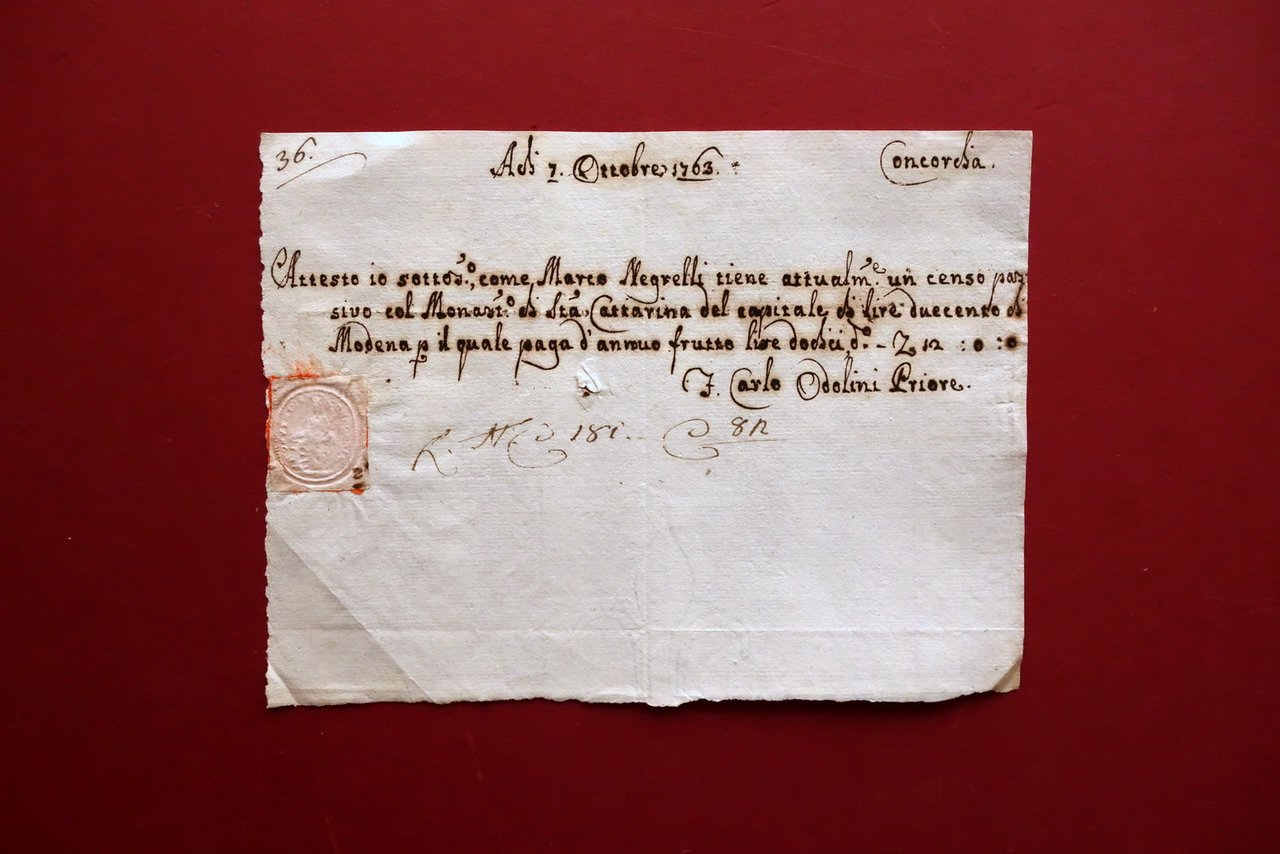 36.
Adi 7. Ottobre 1763.
Concordia.
Attesto io sottos.º, come Marco Negrelli tiene attualm.e un censo pas
sivo col Monast.º di Sta. Cattarina del capitale di lire duecento di
Modena p il quale paga d'annuo frutto lire dodici, d.º - L 12 : 0 : 0
F. Carlo Odolini Priore.
181.
812